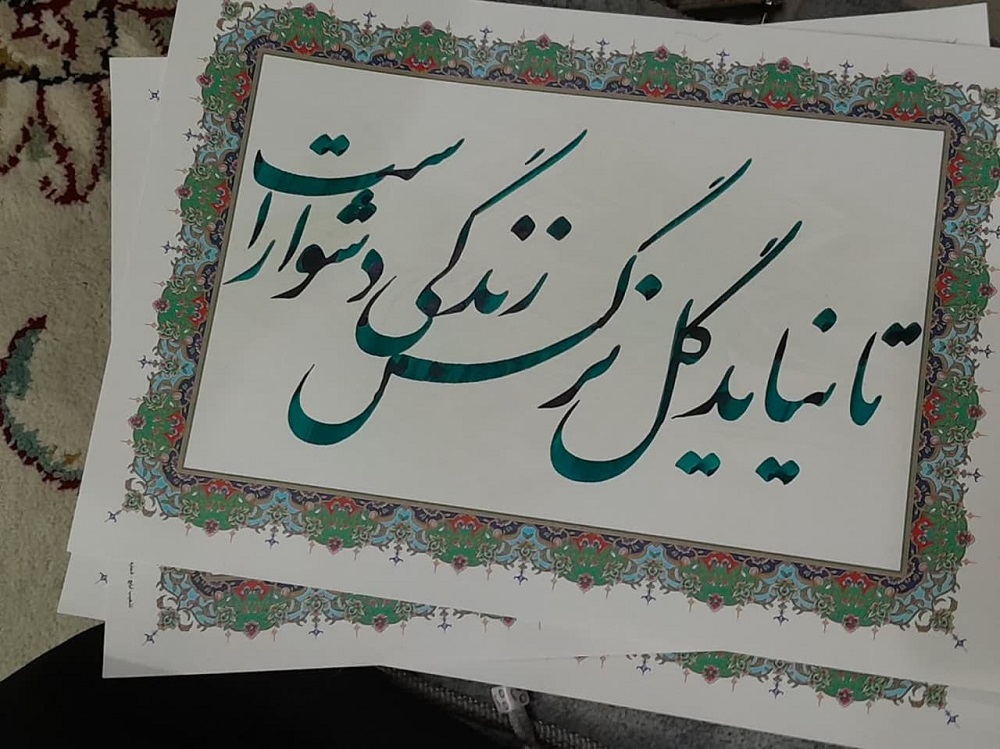 تا نیاید گل نرگس زندگی دشوار است